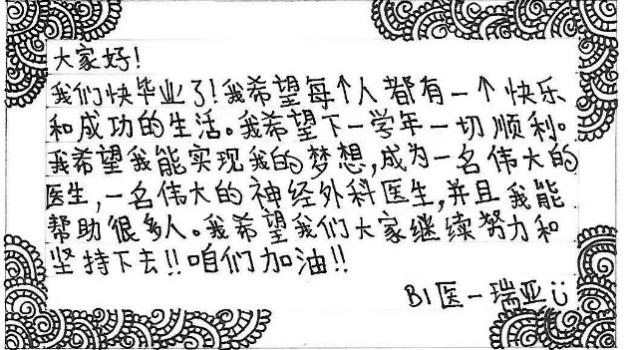 大家好!
我们快毕业了!我希望每个人都有一个快乐
和成功的生活。我希望下一学年一切顺利。
我希望我能实现我的梦想,成为一名伟大的
医生,一名伟大的神经外科医生,并且我能
帮助很多人。我希望我们大家继续努力和
坚持下去!!咱们加油!!
B1医一瑞亚